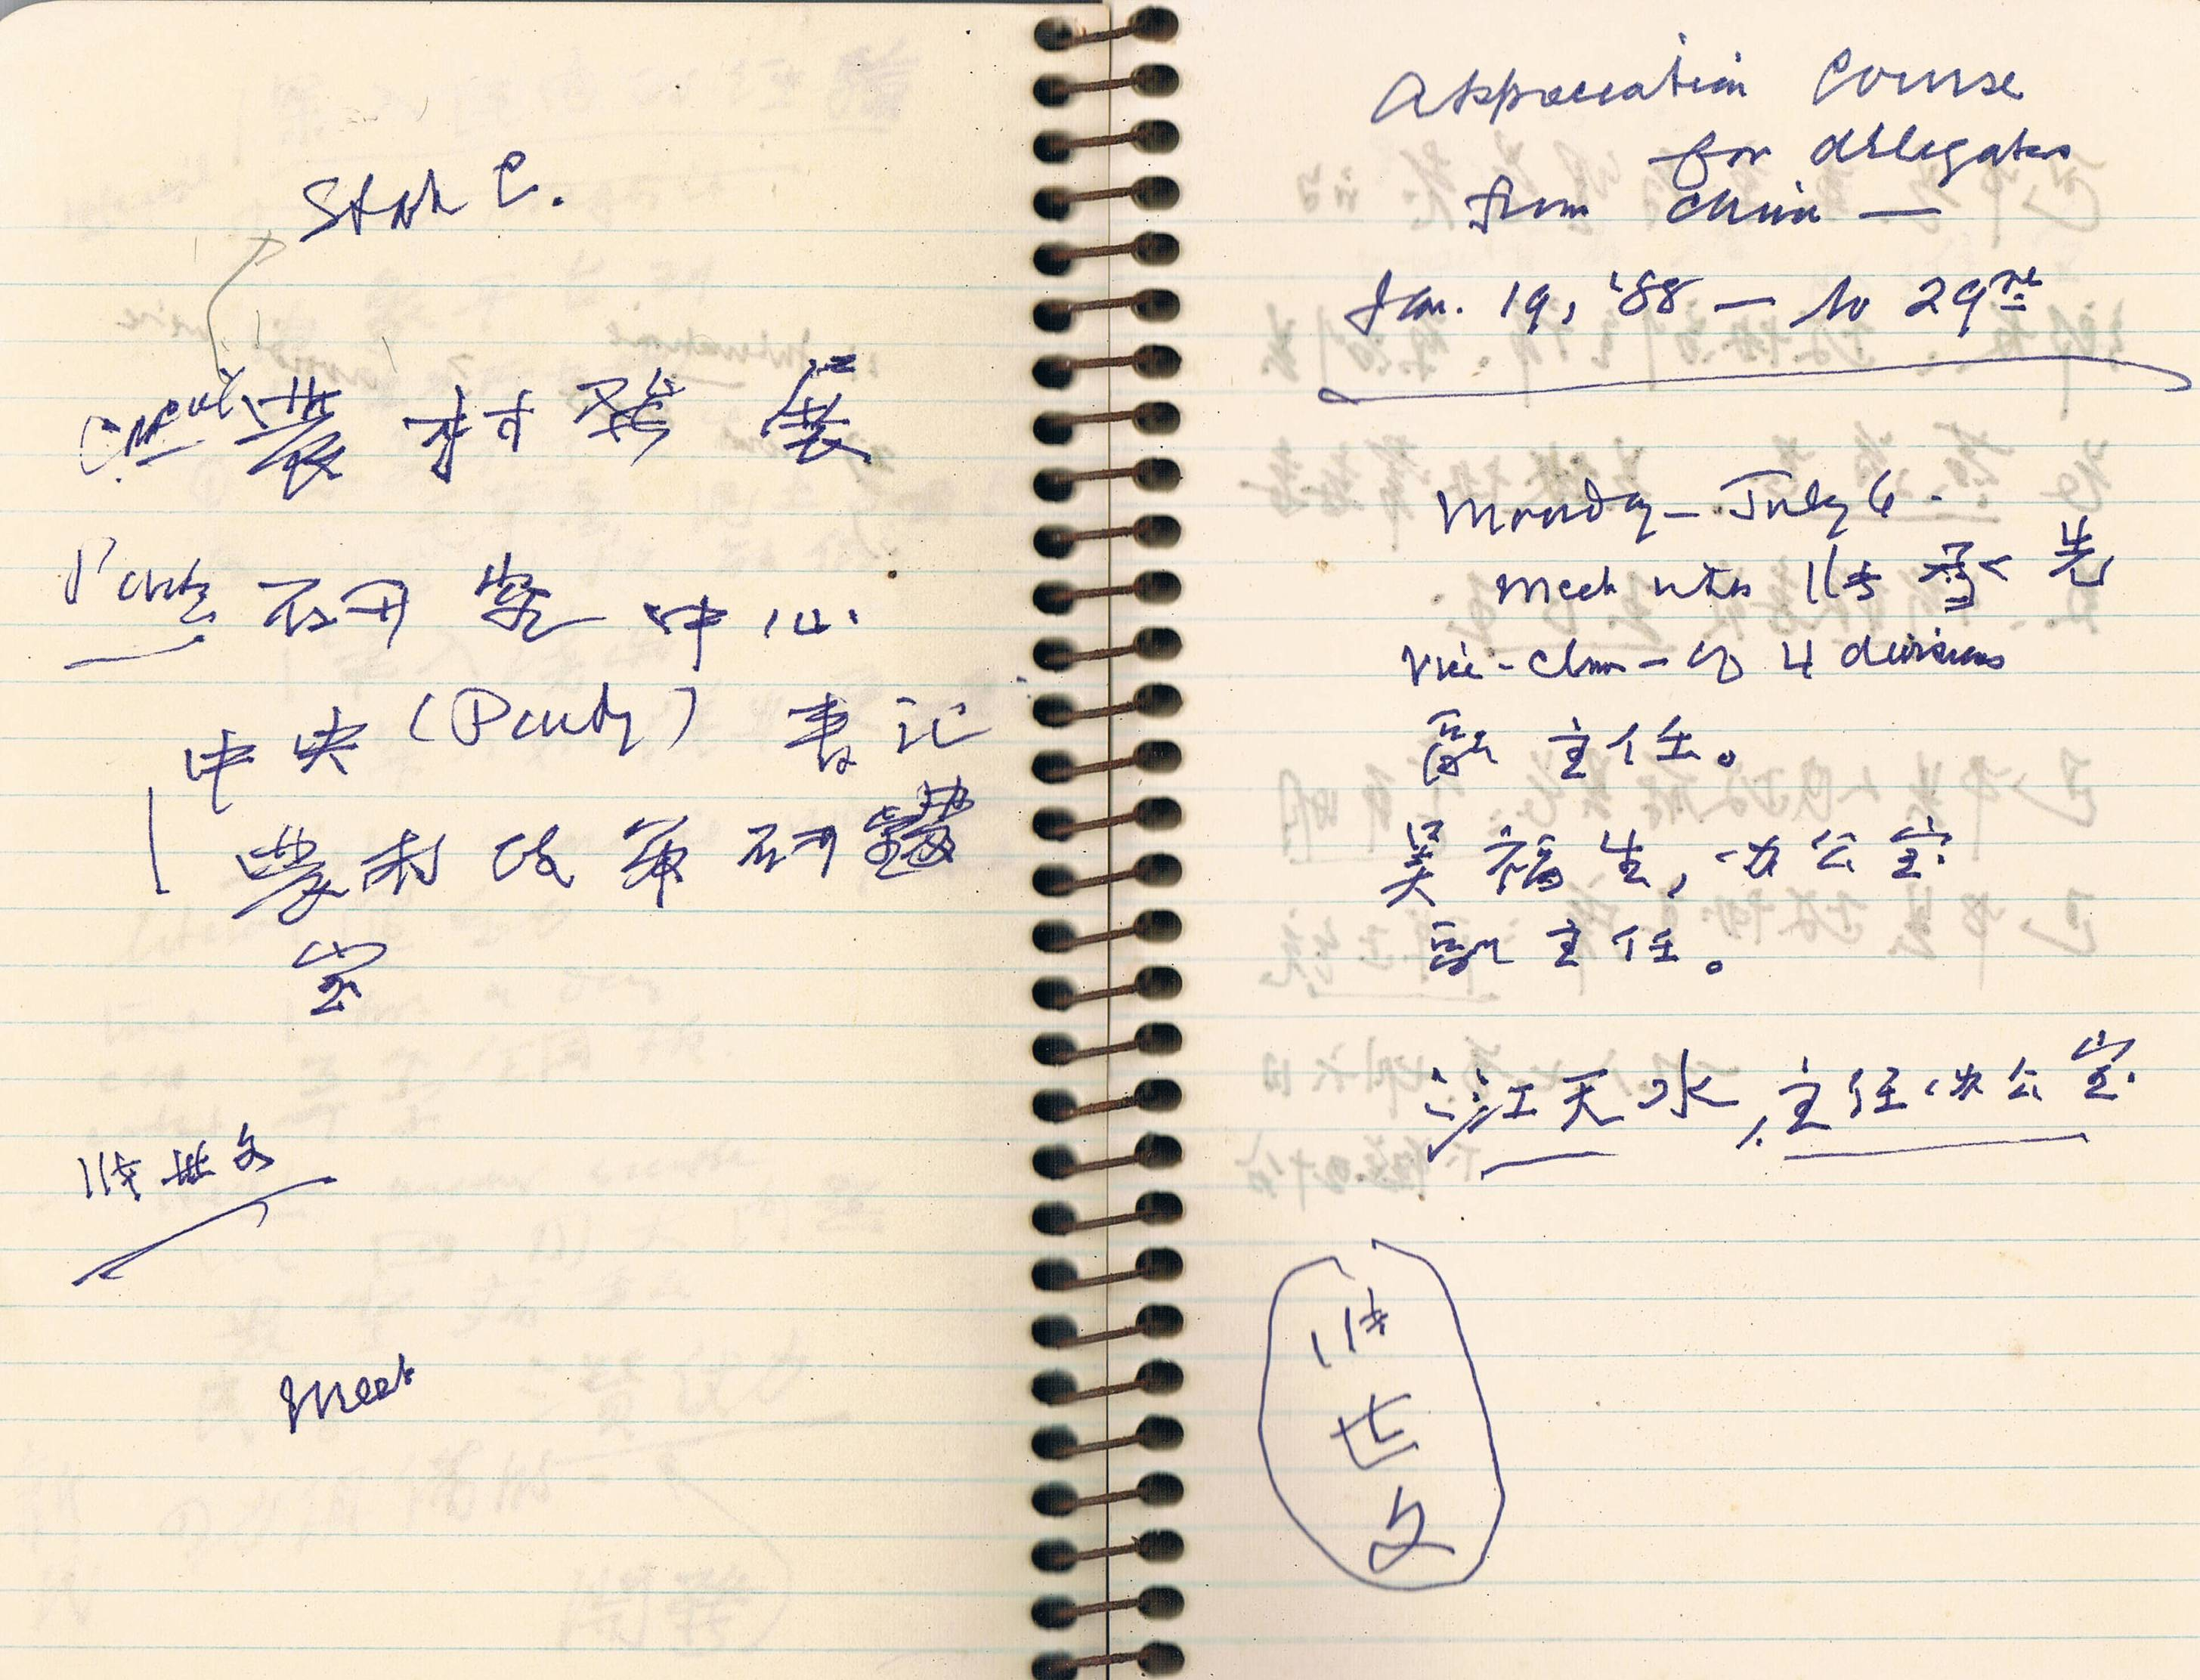 State C.
農村發展
研究中心
中央(Party)書记
農村改革研究
室
许世文
Meet
Appreciation Course
for delegates
from China —
Jan. 19, '88 — to 29
Monday - July 6.
Meet with 张承先
Vice-chm - of 4 divisions
副主任。
吴福生,办公室
副主任。
江天水,主任办公室
世
文